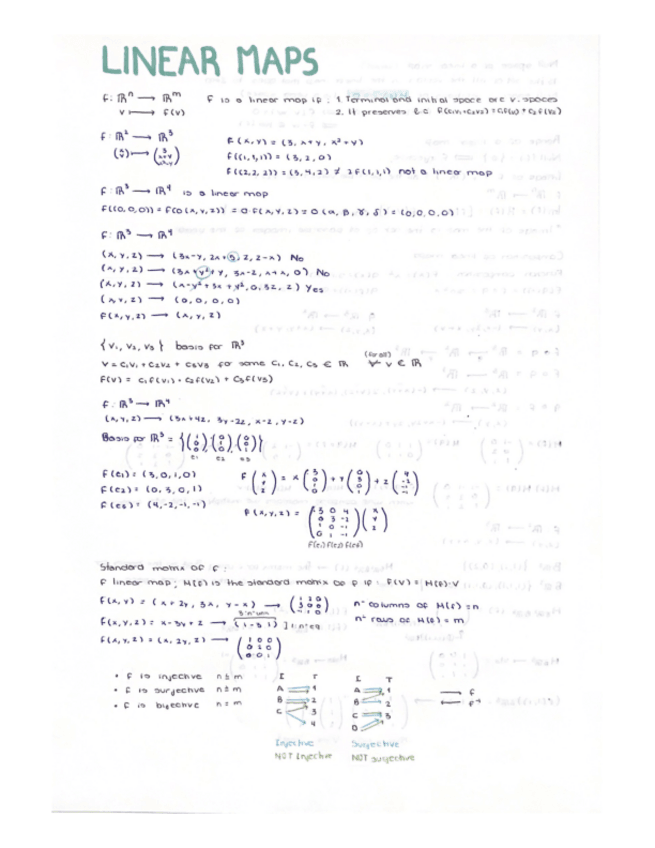 LINEAR MAPS
f: ℝⁿ → ℝᵐ   f is a linear map if: 1. Terminal and initial space are v. spaces
v ↦ f(v)   2. It preserves l.c. f(c₁v₁+c₂v₂) = c₁f(v₁) + c₂f(v₂)
f: ℝ² → ℝ³   f(x,y) = (3, x+y, x²+y)
f((1,1,1)) = (3,2,0)
f((2,2,2)) = (3,4,2) ≠ 2f(1,1,1) not a linear map
f: ℝ³ → ℝ⁴ is a linear map
f((0,0,0)) = f(0(x,y,z)) = 0·f(x,y,z) = 0(α, β, γ, δ) = (0,0,0,0)
f: ℝ³ → ℝ⁴
(x,y,z) → (3x-y, 2x+5, z, 2-x) No
(x,y,z) → (3x+y²+y, 3x-2, x+x, 0) No
(x,y,z) → (x-y²+3x+y², 0, 3z, z) Yes
(x,y,z) → (0,0,0,0)
f(x,y,z) → (x,y,z)
{v₁, v₂, v₃} basis for ℝ³
v = c₁v₁ + c₂v₂ + c₃v₃ for some c₁, c₂, c₃ ∈ ℝ   (for all) ∀ v ∈ ℝ
f(v) = c₁f(v₁) + c₂f(v₂) + c₃f(v₃)
f: ℝ³ → ℝ⁴
(x,y,z) → (3x+4z, 3y-2z, x-z, y-z)
Basis for ℝ³ = {(1 0 0) (0 1 0) (0 0 1)}
e1 e2 e3
f(e1) = (3,0,1,0)   f (x y z) = x (3 0 1 0) + y (0 3 0 1) + z (4 -2 -1 -1)
f(e2) = (0,3,0,1)
f(e3) = (4,-2,-1,-1)   f(x,y,z) = (3 0 4 / 0 3 -2 / 1 0 -1 / 0 1 -1) (x y z)
f(e1) f(e2) f(e3)
Standard matrix of f:
f linear map; M(f) is the standard matrix of f if: f(v) = M(f)·v
f(x,y) = (x+2y, 3x, y-x) →   nº columns of M(f) = n
f(x,y,z) = x-3y+z → (1 -3 1)   nº rows of M(f) = m
f(x,y,z) = (x, 2y, z) → (1 0 0 / 0 2 0 / 0 0 1)
• f is injective n ≤ m   I T   I T
• f is surjective n ≥ m   A 1   A 1   → f
• f is bijective n = m   B 2   B 2   ← f⁻¹
C 3   C 3
4   D
Injective   Surjective
NOT injective   NOT surjective